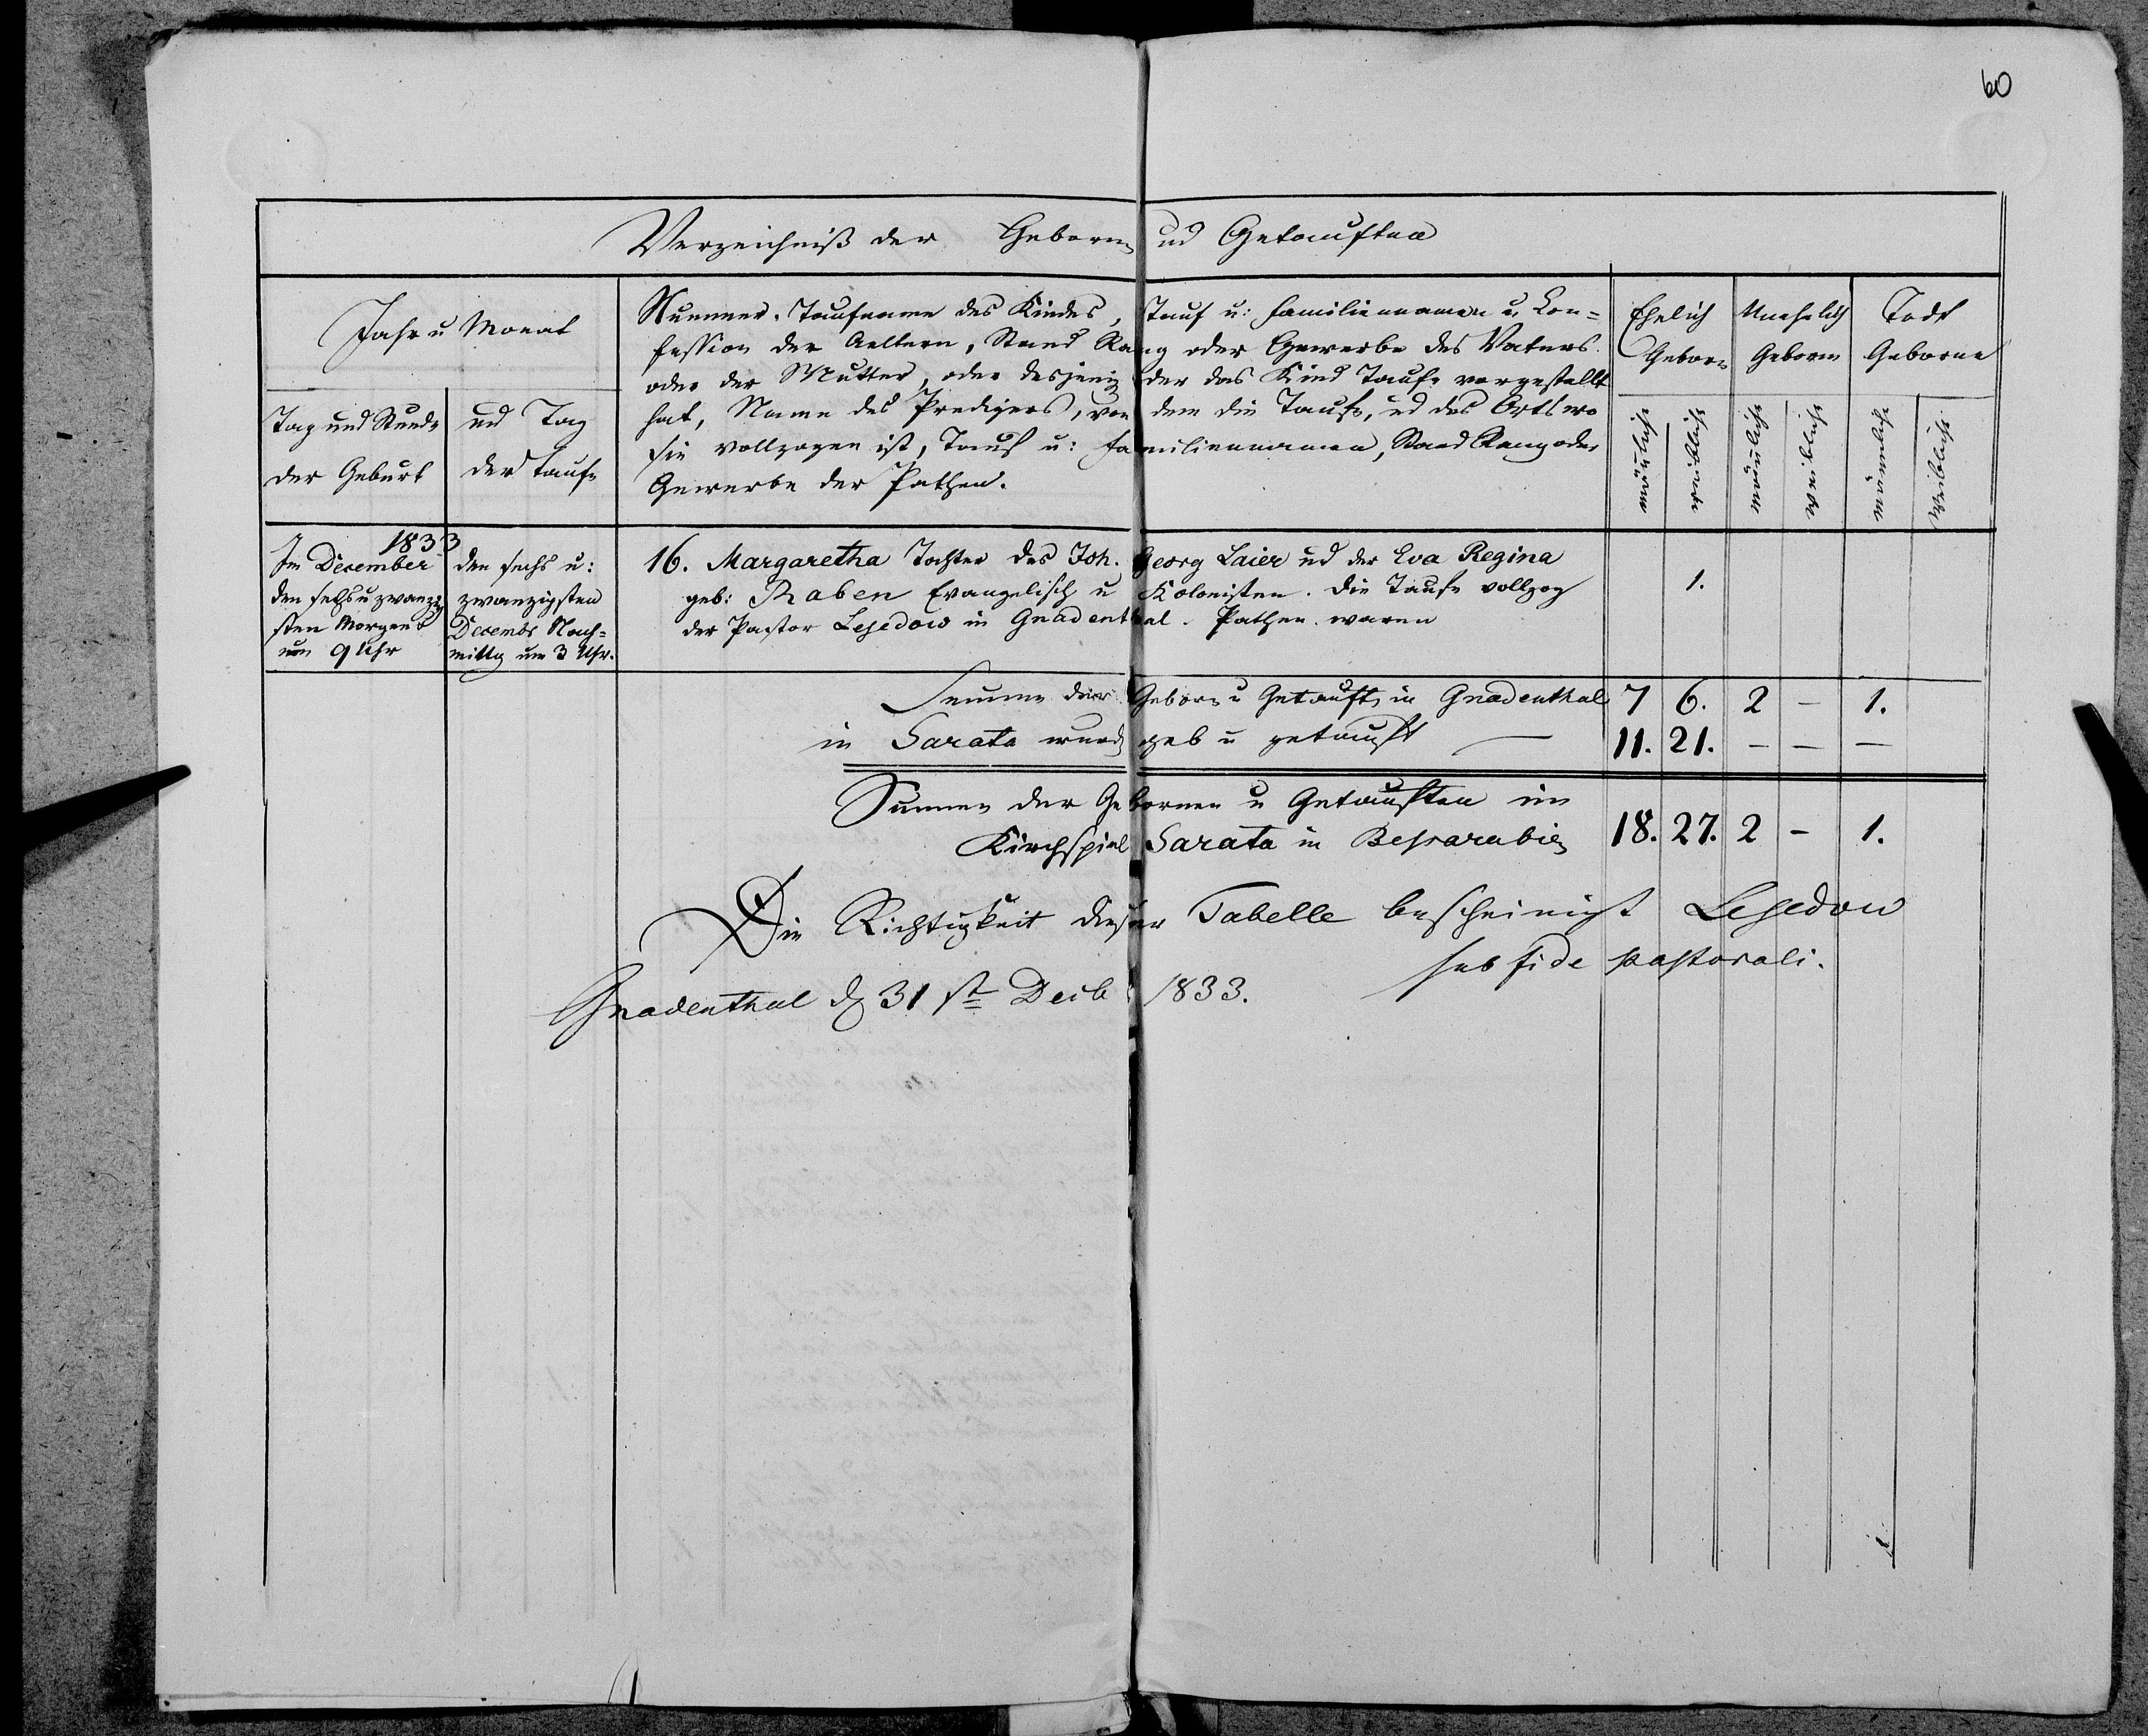 60
Verzeichniß der Geborn und Getauften
Jahr u Monat
Tag und Stunde
der Geburt
ud Tag
der Taufe
Nummer. Taufname des Kindes, Tauf u: Familiennamen u Con=
fession der Aeltern, Stand Rang oder Gewerbe des Vaters
oder der Mutter, oder desjenig der das Kind Taufe vorgestellt
hat, Name des Predigers, von dem die Taufe, ud des Orts wo
sie vollzogen ist, Tauf u: Familiennamen, Stand Rang oder
Gewerbe der Pathen.
Ehelich
Geborn
Unehelich
Geborne
Todt
Geborne
männliche
weibliche
männliche
weibliche
männliche
weibliche
1833
Im December
den sechs u zwanzig
sten Morgens
um 9 Uhr
den sechs u:
zwanzigsten
Decembr Nach=
mittg um 3 Uhr.
16. Margaretha Tochter des Joh. Georg Laier ud der Eva Regina
geb: Raben Evangelisch u Kolonisten. Die Taufe vollzog
der Pastor Lesedow in Gnadenthal. Pathen waren
1.
Summe der Geborn u Getauft in Gnadenthal 7 6. 2 – 1.
in Sarata wurd geb u getauft — 11. 21. – – –
Summe der Gebornen u Getauften im
Kirchspiel Sarata in Bessarabien 18. 27. 2 – 1.
Die Richtigkeit dieser Tabelle bescheinigt Lesedow
sub fide pastorali.
Gnadenthal d 31st Decb 1833.